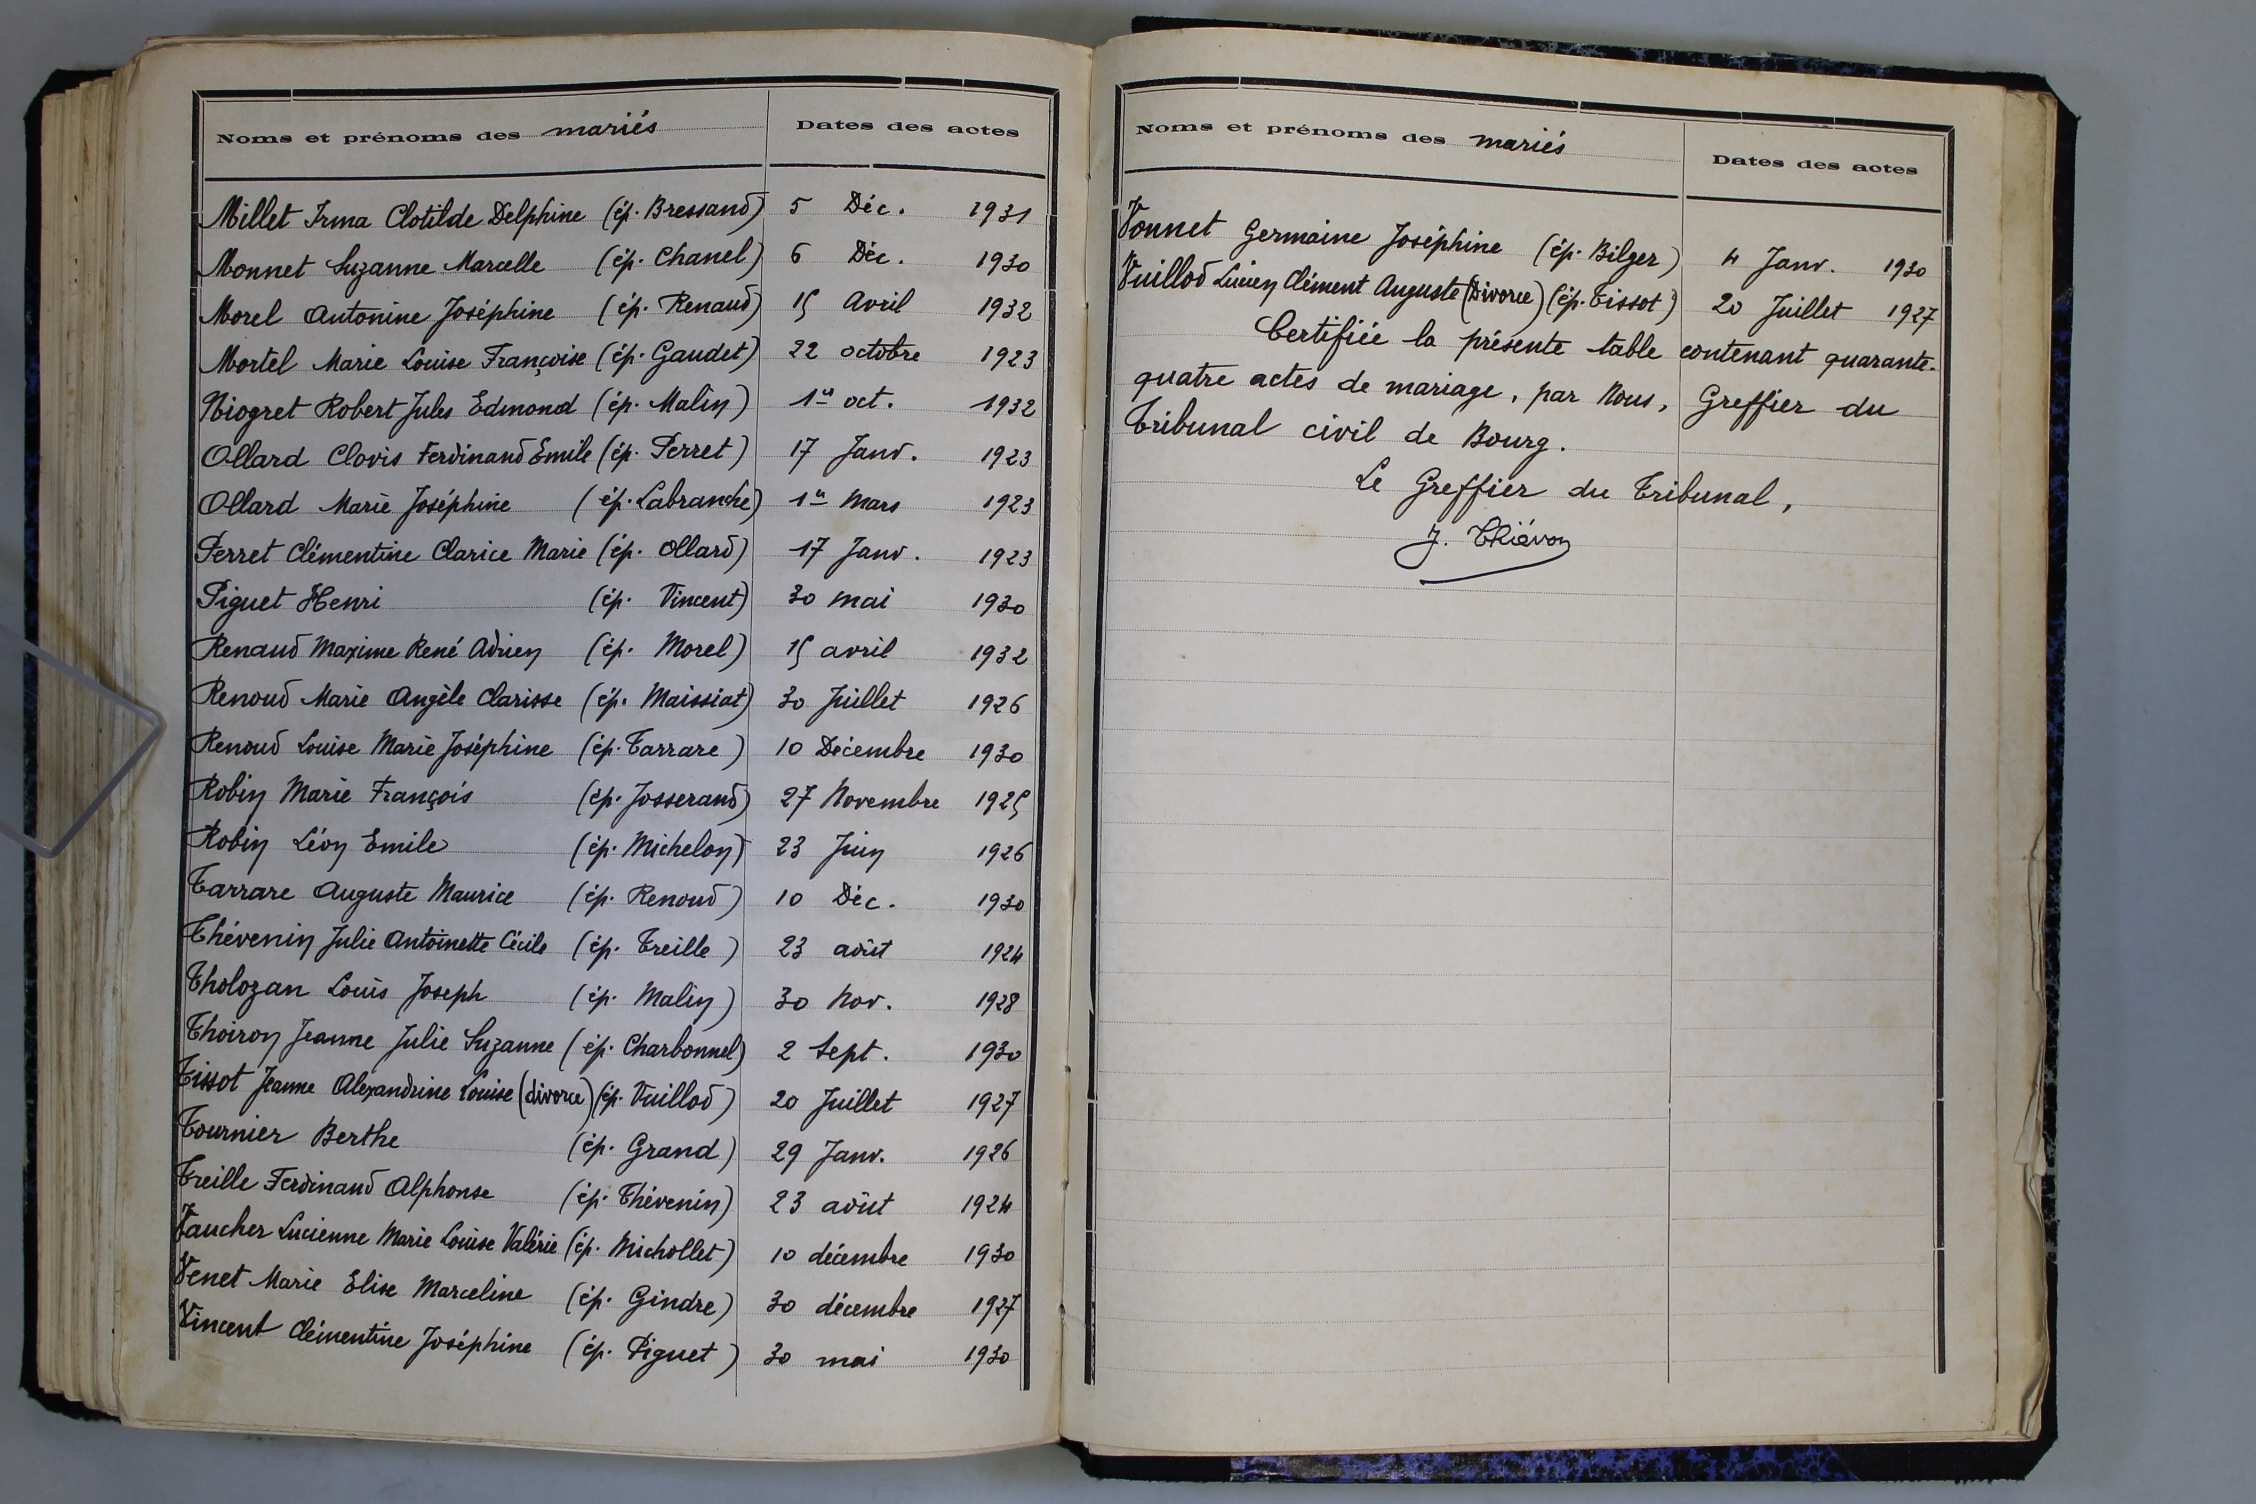 Noms et prénoms des mariés Dates des actes
Millet Irma Clotilde Delphine (ép. Bressand) 5 Déc. 1931
Monnet Suzanne Marcelle (ép. Chanel) 6 Déc. 1930
Morel Antonine Joséphine (ép. Renaud) 15 Avril 1932
Mortel Marie Louise Françoise (ép. Gaudet) 22 octobre 1923
Niogret Robert Jules Edmond (ép. Malin) 1er oct. 1932
Ollard Clovis Ferdinand Emile (ép. Perret) 17 Janv. 1923
Ollard Marie Joséphine (ép. Labranche) 1er Mars 1923
Perret Clémentine Clarice Marie (ép. Ollard) 17 Janv. 1923
Piguet Henri (ép. Vincent) 30 mai 1930
Renaud Maxime René Adrien (ép. Morel) 15 avril 1932
Renoud Marie Angèle Clarisse (ép. Maissiat) 30 Juillet 1926
Renoud Louise Marie Joséphine (ép. Tarrare) 10 Décembre 1930
Robin Marie François (ép. Josserand) 27 Novembre 1925
Robin Léon Emile (ép. Michelon) 23 Juin 1926
Tarrare Auguste Maurice (ép. Renoud) 10 Déc. 1930
Thévenin Julie Antoinette Cécile (ép. Treille) 23 août 1924
Tholozan Louis Joseph (ép. Malin) 30 Nov. 1928
Thoiron Jeanne Julie Suzanne (ép. Charbonnel) 2 Sept. 1930
Tissot Jeanne Alexandrine Louise (divorce) (ép. Vuillod) 20 Juillet 1927
Tournier Berthe (ép. Grand) 29 Janv. 1926
Treille Ferdinand Alphonse (ép. Thévenin) 23 août 1924
Vaucher Lucienne Marie Louise Valérie (ép. Michollet) 10 décembre 1930
Venet Marie Elise Marceline (ép. Gindre) 30 décembre 1927
Vincent Clémentine Joséphine (ép. Piguet) 30 mai 1930
Noms et prénoms des mariés Dates des actes
Vonnet Germaine Joséphine (ép. Bilger) 4 Janv. 1930
Vuillod Lucien Clément Auguste (Divorce) (ép. Tissot) 20 Juillet 1927
Certifiée la présente table contenant quarante-
quatre actes de mariage, par Nous, Greffier du
Tribunal civil de Bourg.
Le Greffier du Tribunal,
J. Thiévon